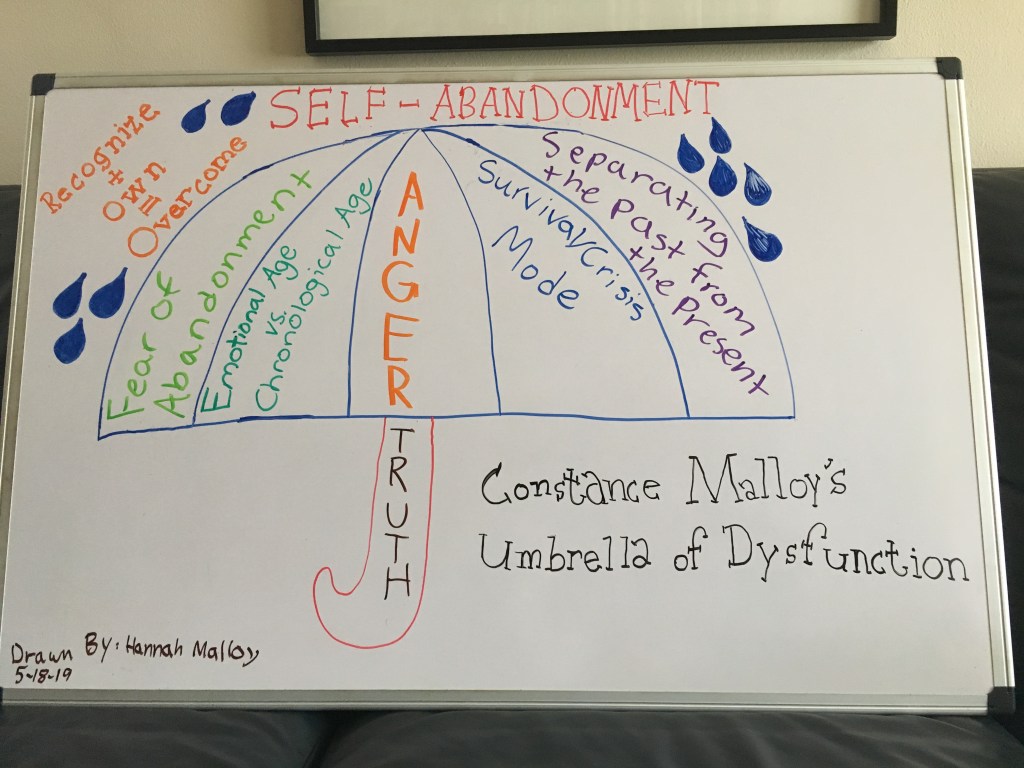 SELF-ABANDONMENT
Recognize
+
Own
=
Overcome
Fear of
Abandonment
Emotional Age
vs.
Chronological Age
ANGER
Survival/Crisis
Mode
Separating
the past from
the present
TRUTH
Constance Malloy's
Umbrella of Dysfunction
Drawn By: Hannah Malloy
5-18-19